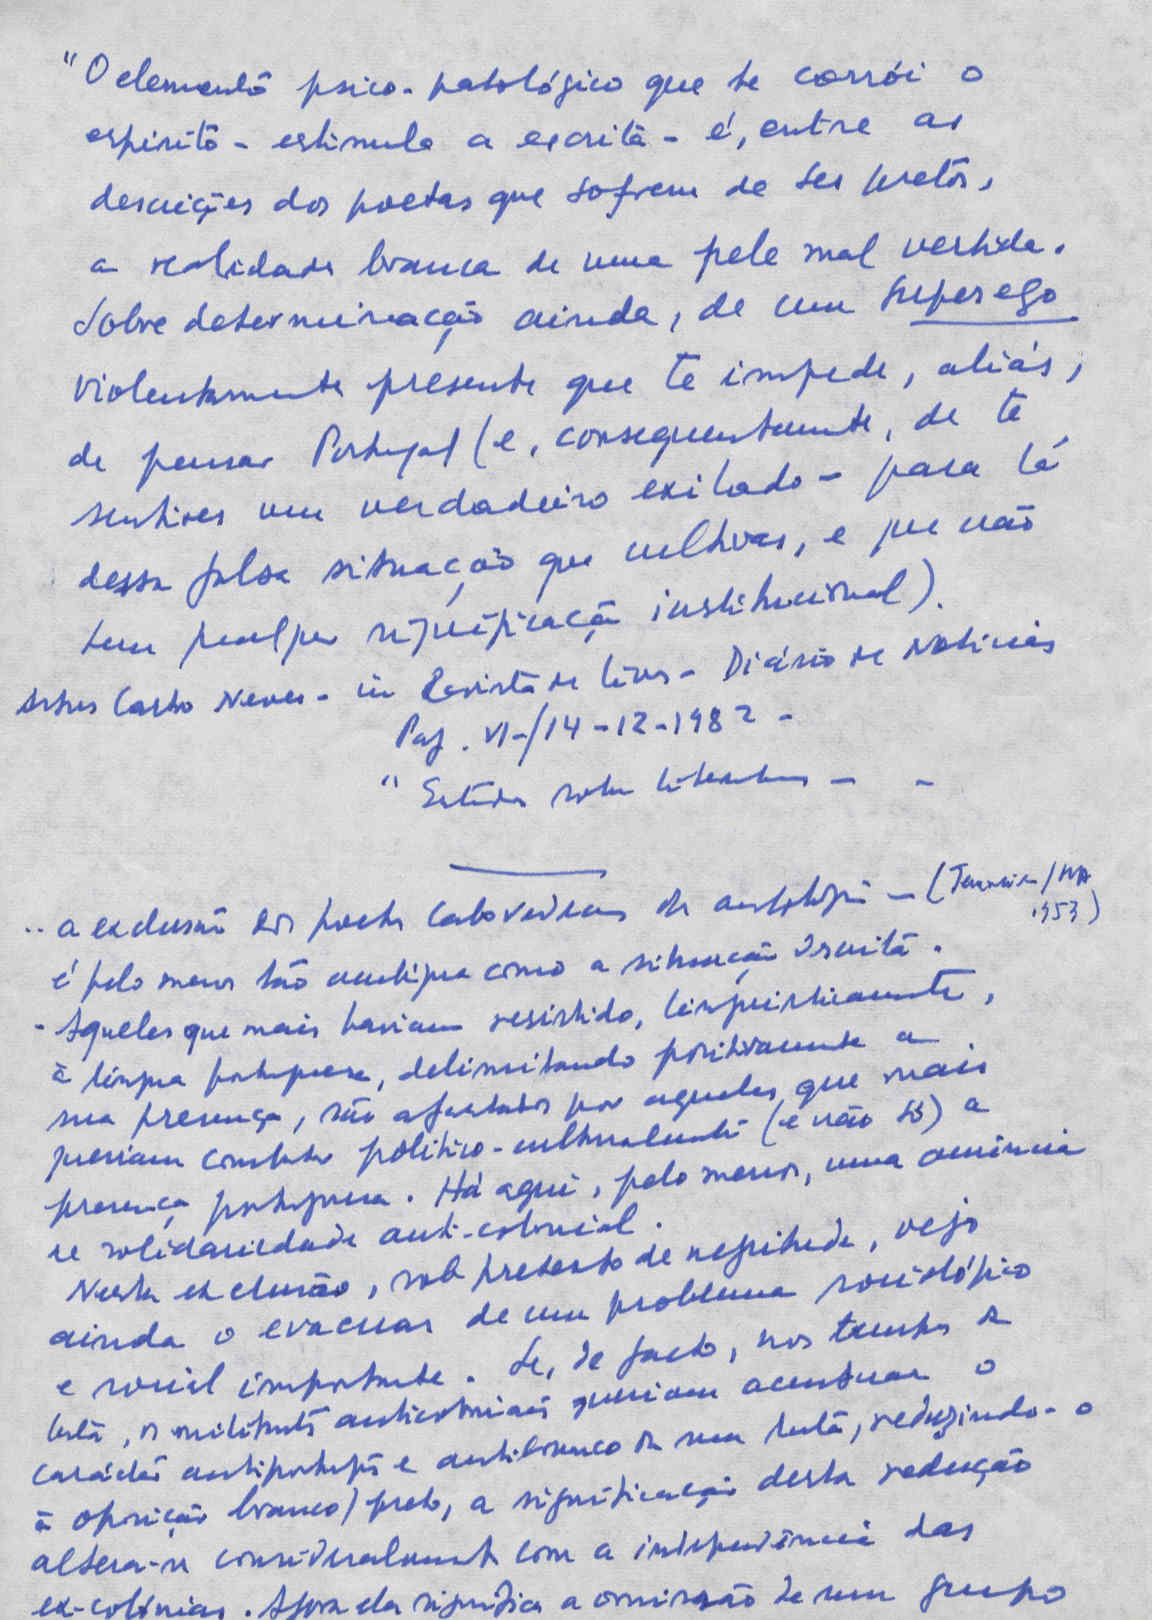 "O elemento psico-patológico que te corrói o
espírito - estimula a escrita - é, entre as
descrições dos poetas que sofrem de ser pretos,
a realidade branca de uma pele mal vestida.
Sobredeterminação ainda, de um Superego
violentamente presente que te impede, aliás,
de pensar Portugal (e, consequentemente, de te
sentires um verdadeiro exilado - para lá
dessa falsa situação que cultivas, e que não
tem qualquer significação institucional).
Castro Neves - in Revista de Livros - Diário de Notícias
Pag. VI -/14-12-1982 -
" Estudos sobre literaturas - -
.. a exclusão dos poetas caboverdeanos da antologia - (Tenreiro/MPA
1953)
é pelo menos tão ambígua como a situação descrita.
- Aqueles que mais haviam resistido, linguisticamente,
à língua portuguesa, delimitando positivamente a
sua presença, são afastados por aqueles que mais
queriam combater político-culturalmente (e não só) a
presença portuguesa. Há aqui, pelo menos, uma ausência
de solidariedade anti-colonial.
Nesta exclusão, sob pretexto de negritude, vejo
ainda o evacuar de um problema sociológico
e social importante. Se, de facto, nos tempos da
luta, os militants anticoloniais queriam acentuar o
carácter antiportuguês e antibranco da sua luta, reduzindo-o
à oposição branco/preto, a significação desta redução
altera-se consideralmente com a independência das
ex-colónias. Agora ela significa a omissão de um grupo